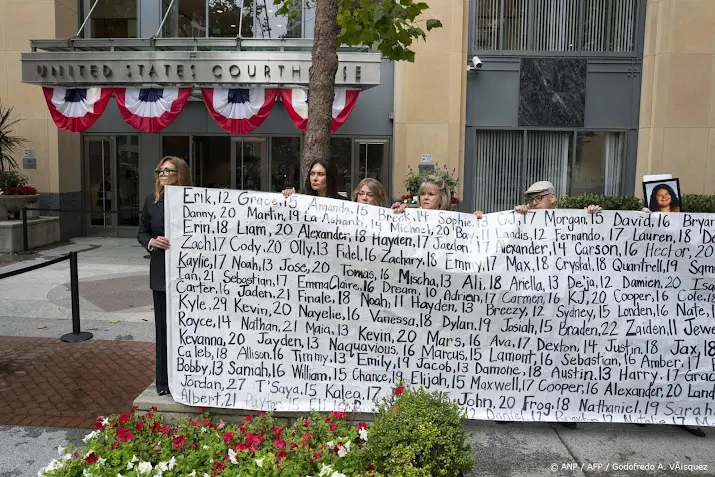 UNITED STATES COURTHOUSE
Erik, 12 Grace, 15 Amanda, 15 Break, 39 Sophie, 13 CJ, 17 Morgan, 15 David, 16 Bryan
Danny, 20 Martin, 19 La-Shanti, 14 Michael, 20 Bay, 17 Landis, 12 Fernando, 17 Lauren, 18 Da
Erin, 18 Liam, 20 Alexander, 18 Hayden, 17 Jaelan, 17 Alexander, 14 Carson, 16 Hector, 20
Zach, 17 Cody, 20 Olly, 13 Fidel, 16 Zachary, 18 Emmy, 17 Max, 18 Crystal, 18 Quantrell, 19 Sam
Kaylie, 17 Noah, 13 Jose, 20 Tomas, 16 Mischa, 13 Ali, 18 Ariella, 13 De'ja, 12 Damien, 20 Isa
Ian, 21 Sebastian, 17 EmmaClaire, 16 Dream, 10 Adrien, 17 Carmen, 16 KJ, 20 Cooper, 16 Cole, 18
Carter, 16 Jaden, 21 Finale, 18 Noah, 11 Hayden, 13 Breezy, 12 Sydney, 15 Londen, 16 Nate, 1
Kyle, 29 Kevin, 20 Nayelie, 16 Vanessa, 18 Dylan, 19 Josiah, 15 Braden, 22 Zaiden, 11 Jewe
Royce, 14 Nathan, 21 Maia, 13 Kevin, 20 Mars, 16 Ava, 17 Dexton, 14 Justin, 18 Jax, 18
Kevanna, 20 Jayden, 13 Naquavious, 16 Marcus, 15 Lamont, 16 Sebastian, 16 Amber, 17 E
Caleb, 18 Allison, 16 Timmy, 13 Emily, 14 Jacob, 13 Damone, 18 Austin, 13 Harry, 17 Grac
Bobby, 13 Saniah, 16 William, 15 Chance, 19 Elijah, 15 Maxwell, 17 Cooper, 16 Alexander, 20 Land
Jordan, 27 T'Saya, 15 Kalea, John, 20 Frog, 18 Nathaniel, 19 Sarah
Albert, 21
© ANP / AFP / Godofredo A. VÃ­squez